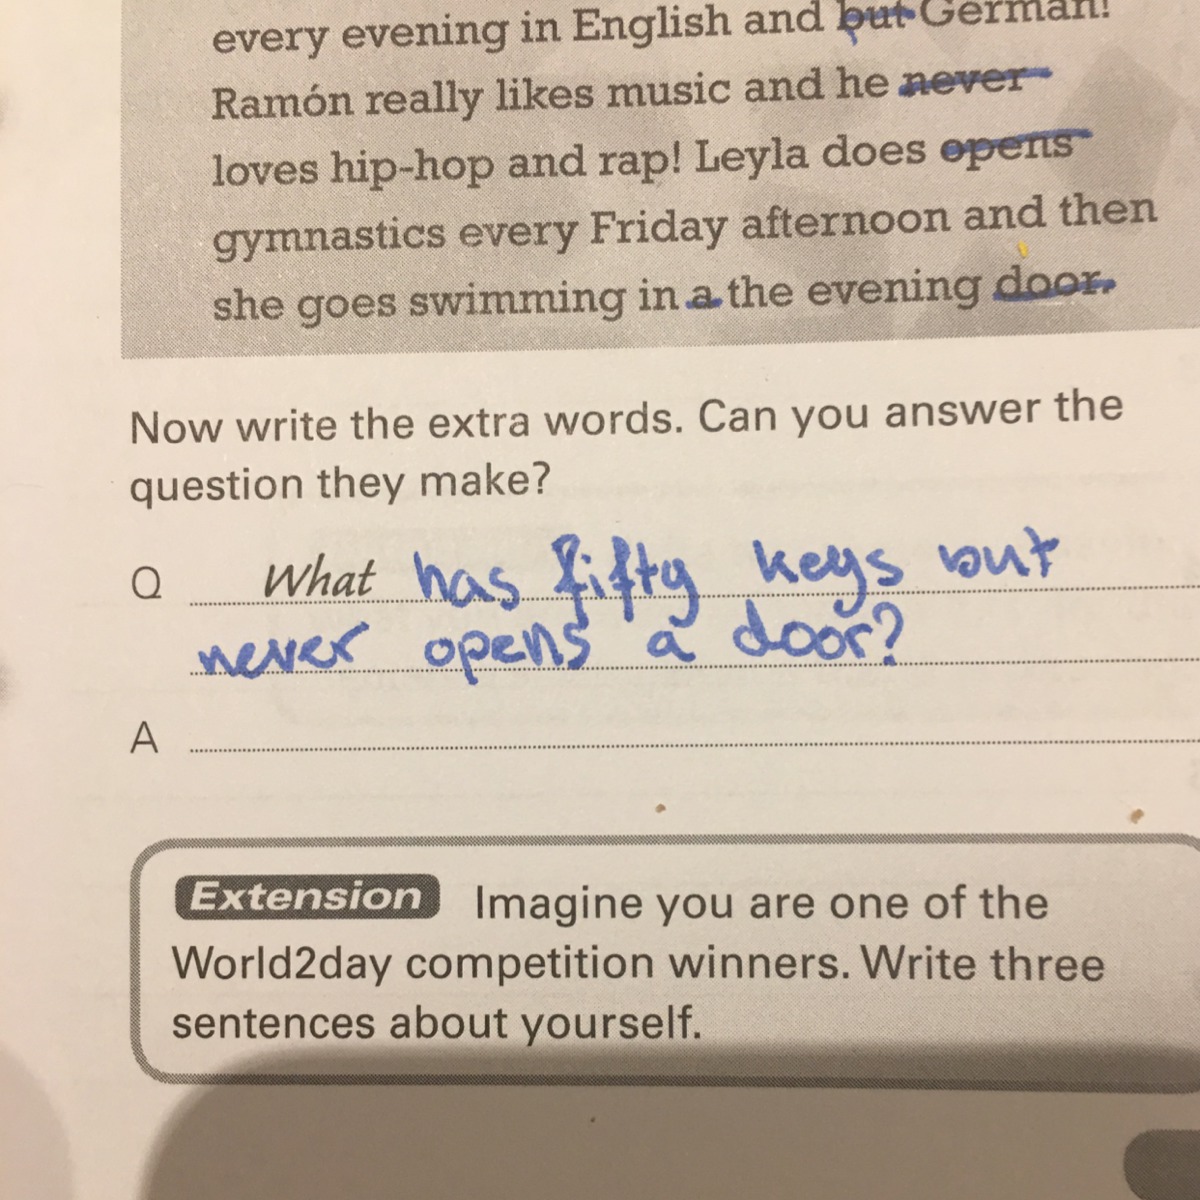 every evening in English and but German!
Ramón really likes music and he never
loves hip-hop and rap! Leyla does opens
gymnastics every Friday afternoon and then
she goes swimming in a the evening door.
Now write the extra words. Can you answer the
question they make?
Q What has fifty keys but
never opens a door?
A
Extension Imagine you are one of the
World2day competition winners. Write three
sentences about yourself.